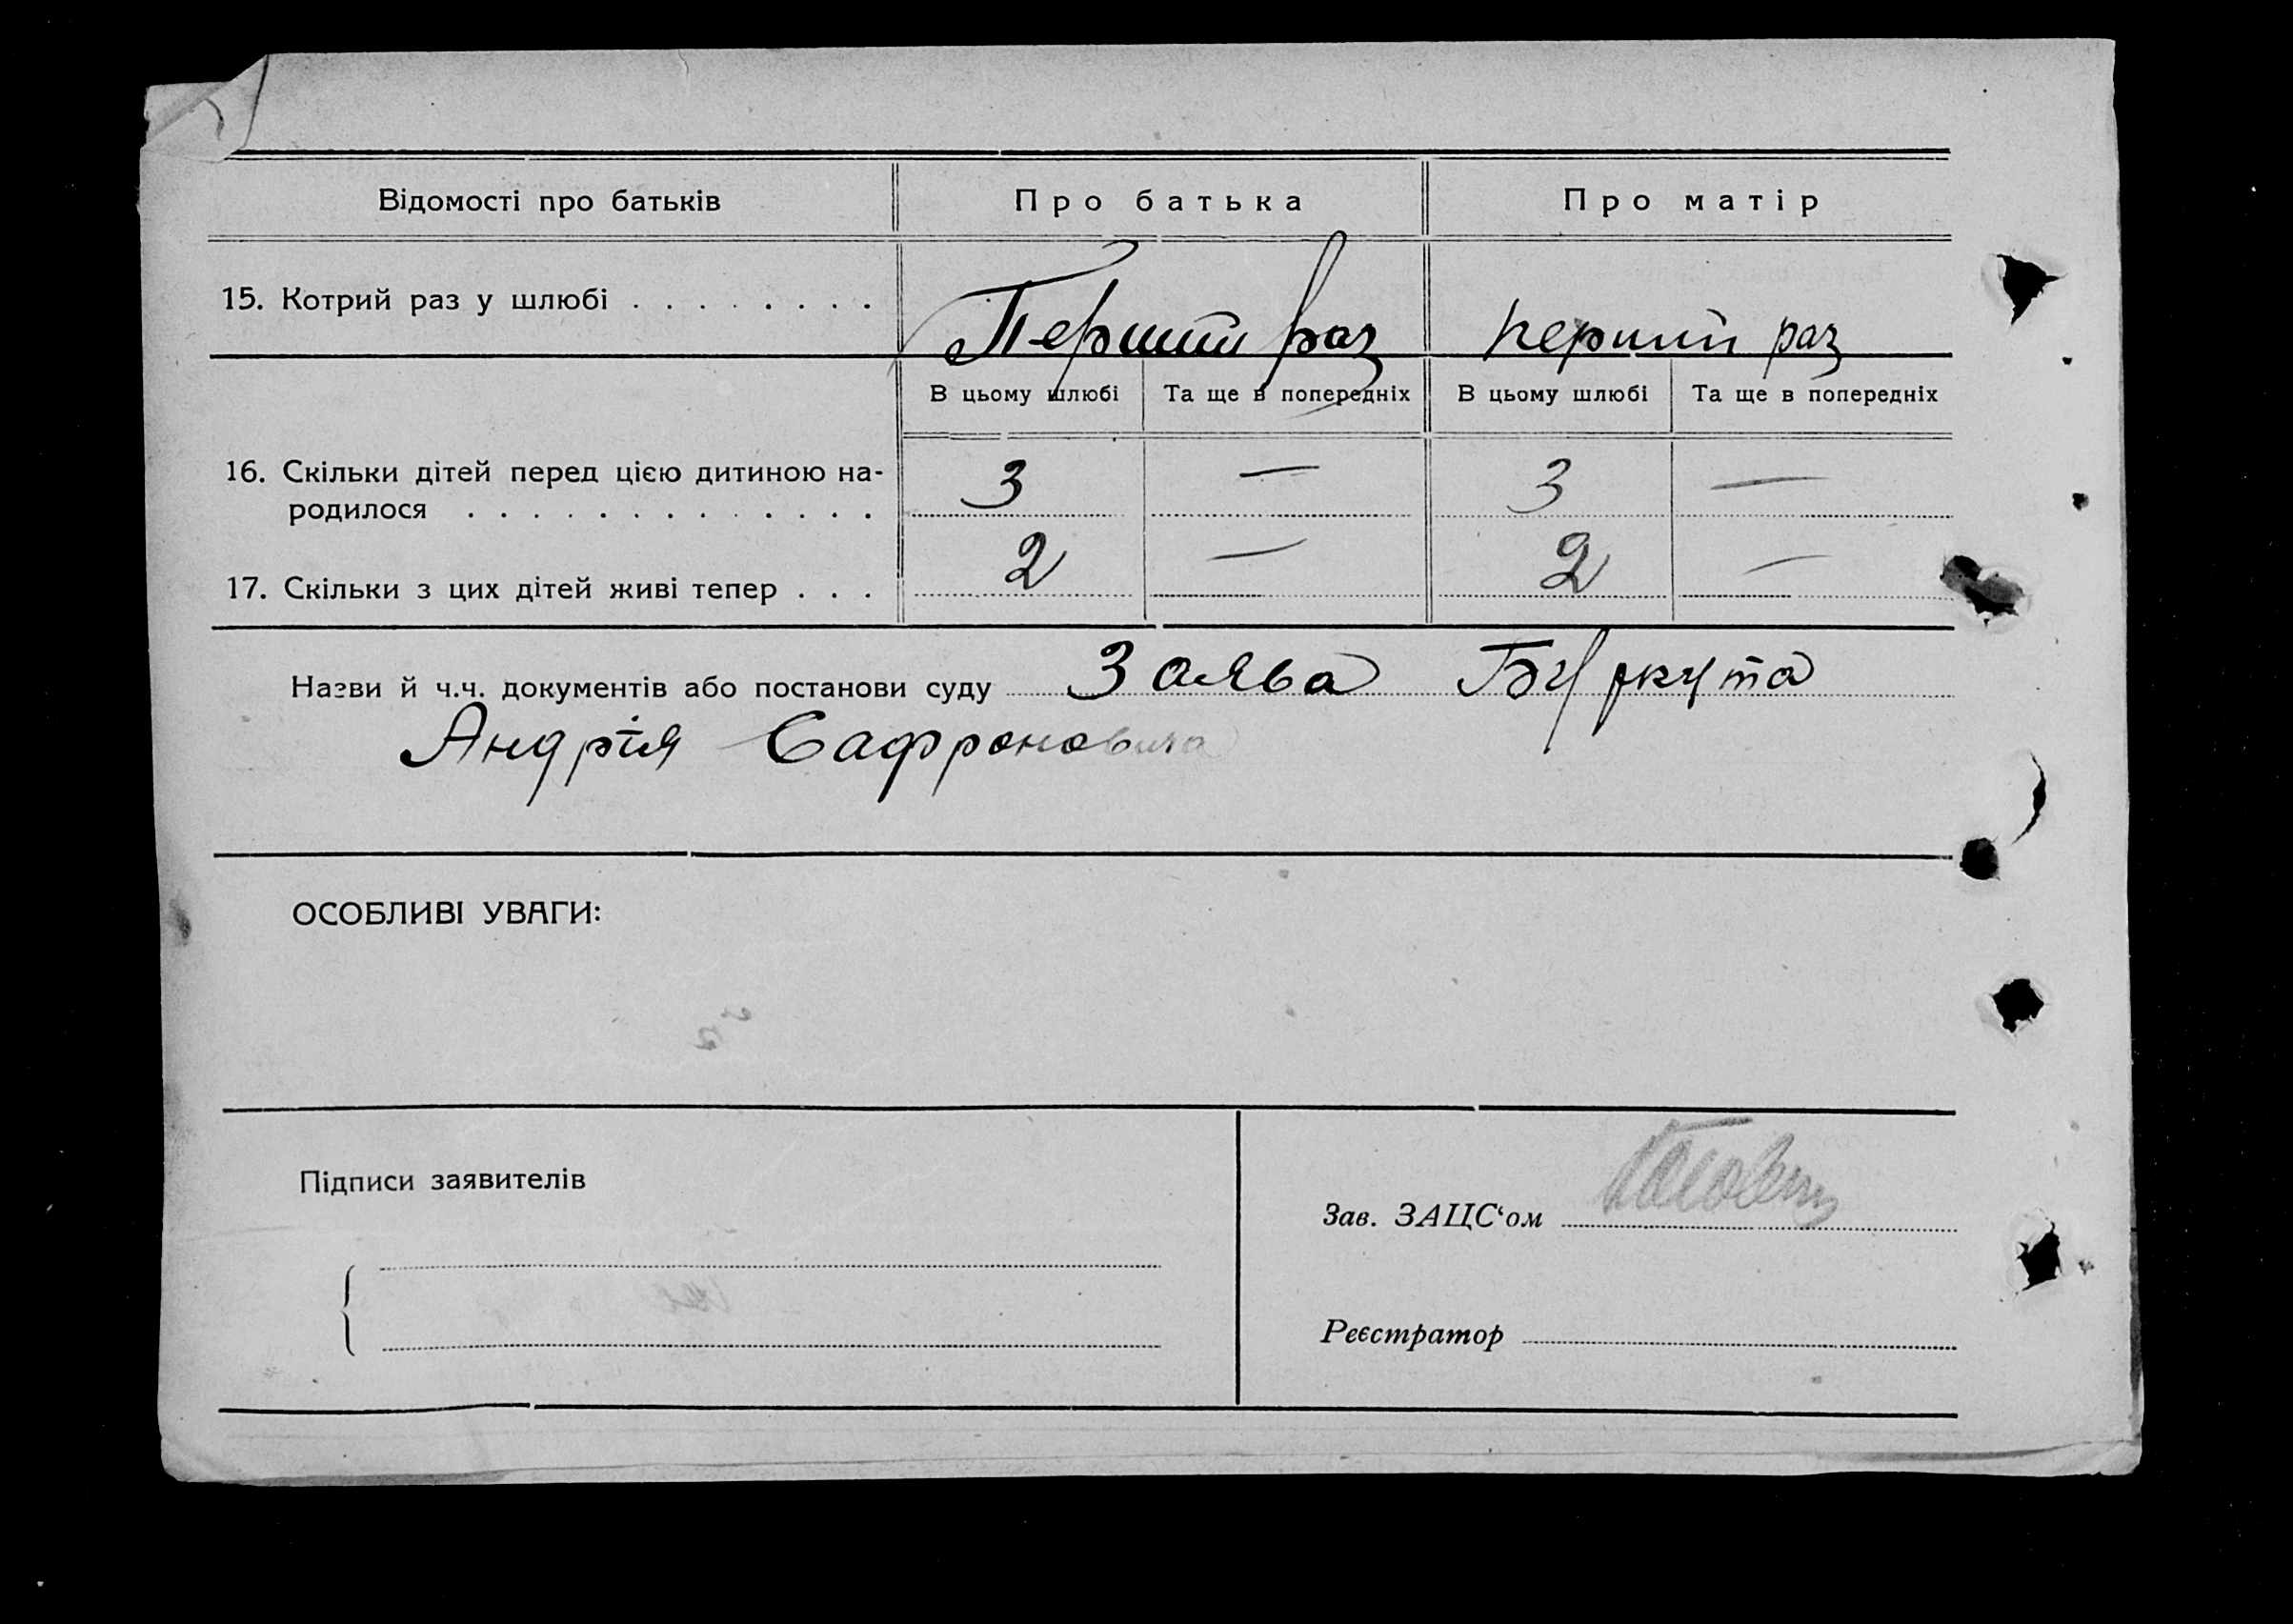 Відомості про батьків Про батька Про матір
15. Котрий раз у шлюбі . . . . . . . . Перший раз перший раз
В цьому шлюбі Та ще в попередніх В цьому шлюбі Та ще в попередніх
16. Скільки дітей перед цією дитиною на-
родилося . . . . . . . . . . . . . 3 — 3 —
17. Скільки з цих дітей живі тепер . . . 2 — 2 —
Назви й ч.ч. документів або постанови суду Заява Буркута
Андрія Сафроновича
ОСОБЛИВІ УВАГИ:
Підписи заявителів
Зав. ЗАЦС‘ом
Реєстратор